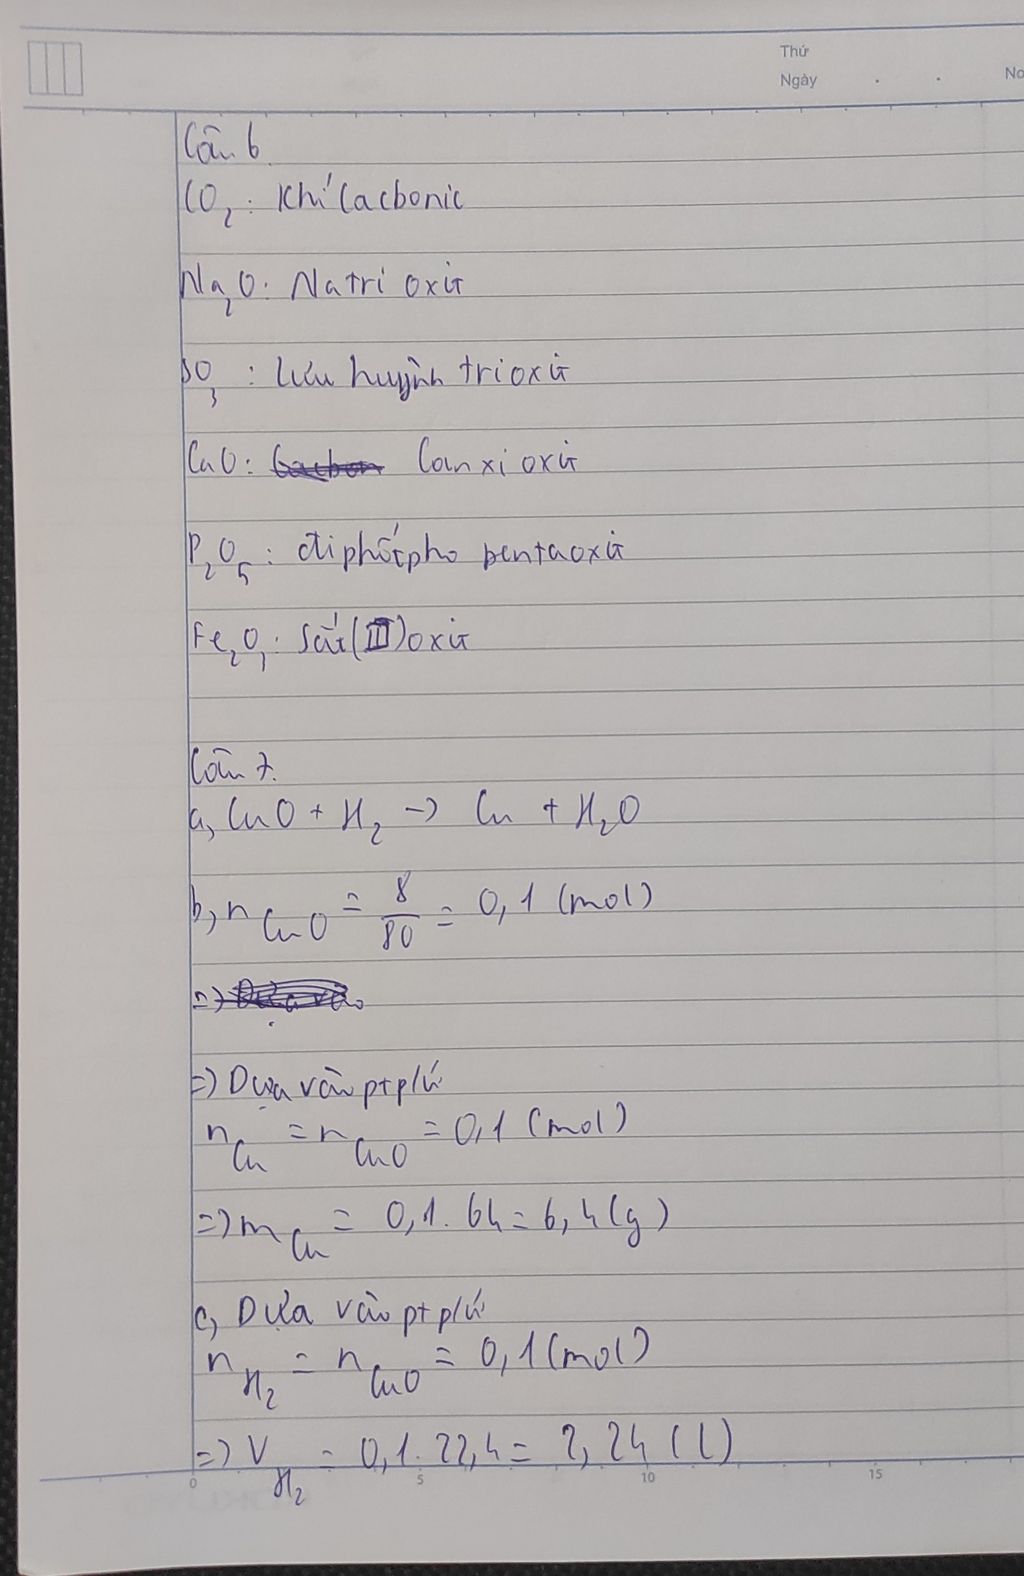 Thứ
Ngày . . No
Câu 6
CO2: Khí Cacbonic
Na2O: Natri oxit
SO3: Lưu huỳnh trioxit
CaO: Canxi oxit
P2O5: điphốtpho pentaoxit
Fe2O3: Sắt(III)oxit
Câu 7.
a, CuO + H2 -> Cu + H2O
b, nCuO = 8/80 = 0,1 (mol)
=>
=> Dựa vào ptpứ
nCu = nCuO = 0,1 (mol)
=> mCu = 0,1.64 = 6,4 (g)
c, Dựa vào ptpứ
nH2 = nCuO = 0,1 (mol)
=> VH2 = 0,1.22,4 = 2,24 (l)
0 5 10 15